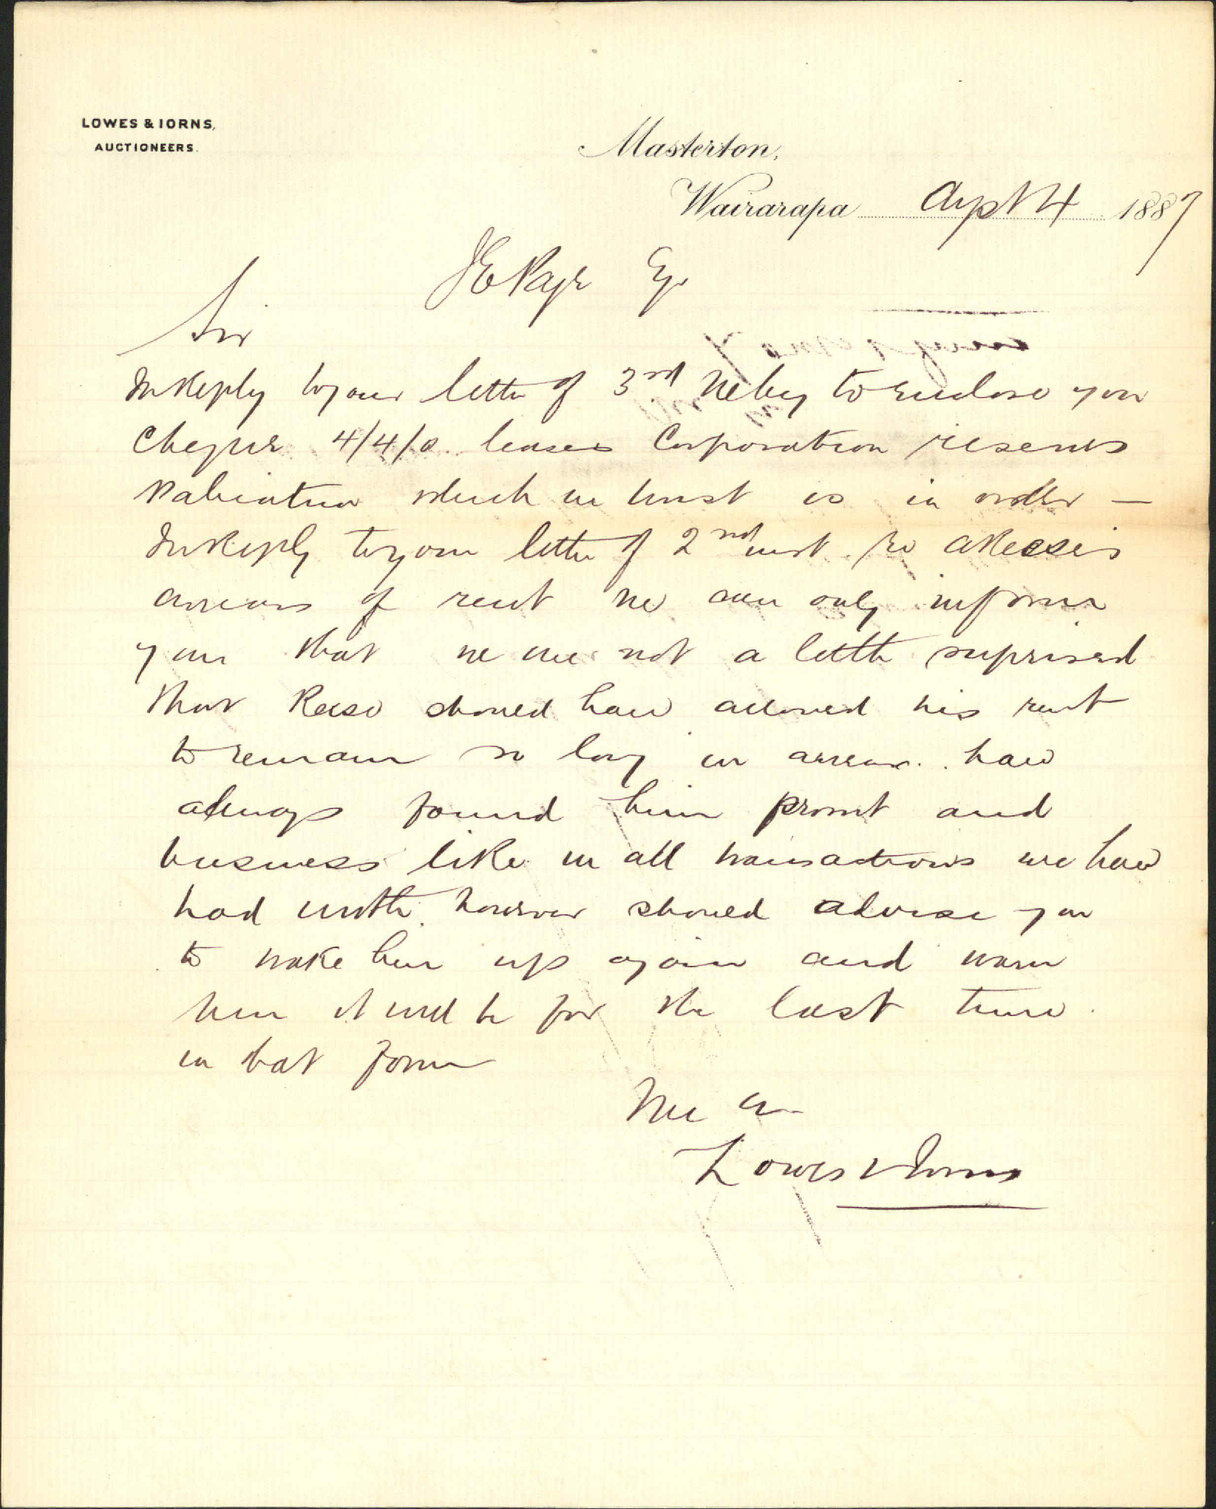 LOWES & IORNS,
AUCTIONEERS.
Masterton,
Wairarapa Sept 4 1887
J E Page Esq
Sir
In Reply to your letter of 3rd We beg to enclose you
Cheque 4/4/0 leases Corporation reserves
Valuation which we trust is in order —
In Reply to your letter of 2nd inst re A Reeses
arrears of rent we can only inform
you that we are not a little suprised
that Reese should have allowed his rent
to remain so long in arrear. have
always found him promt and
business like in all transactions we have
had with. however should advise you
to wake him up again and warn
him it will be for the last time
in that form
We are
Lowes & Iorns